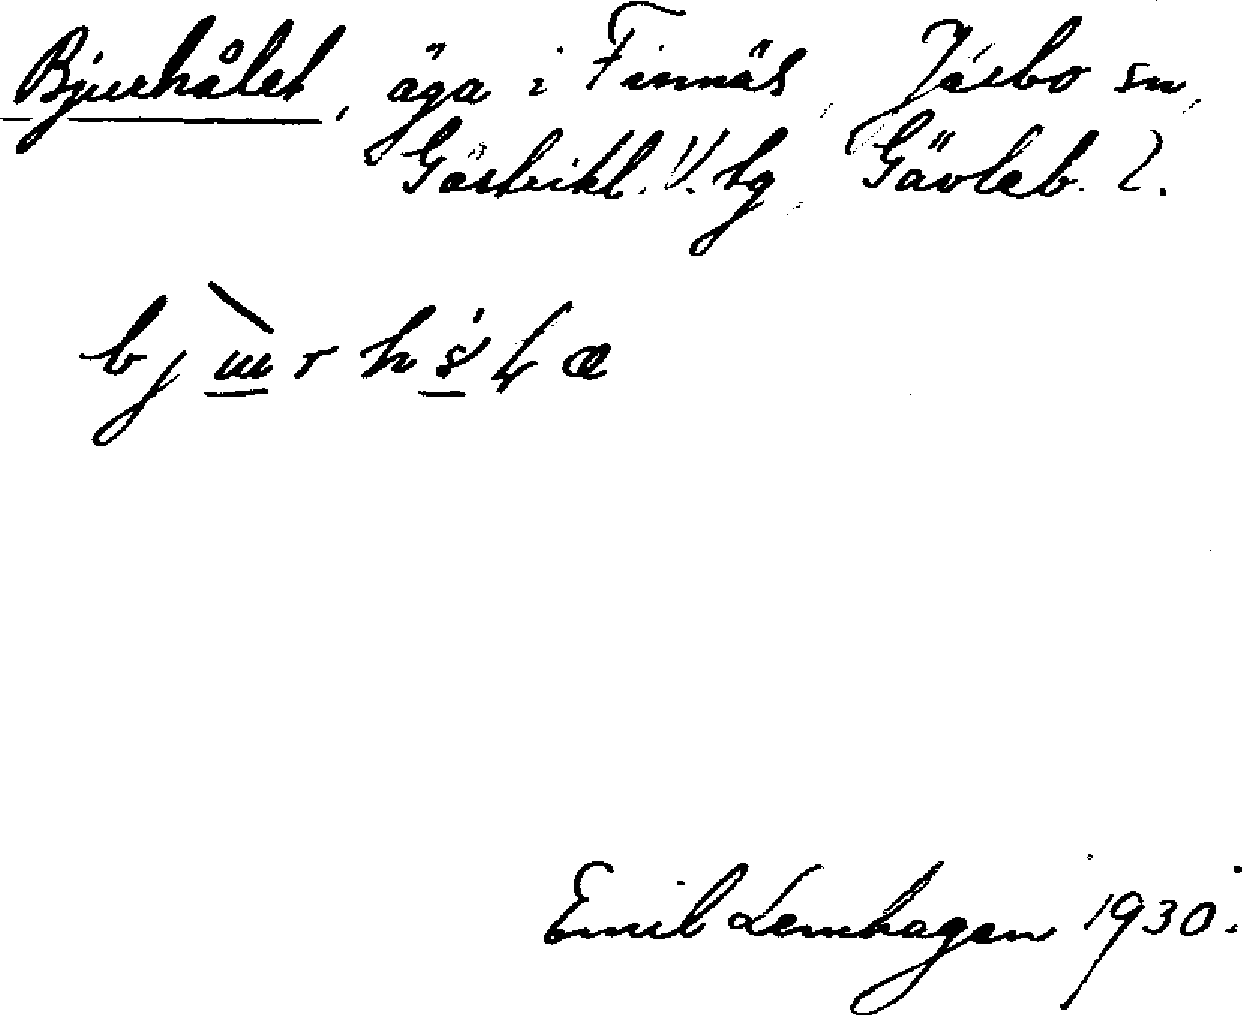 Bjurhålet, äga i Finnäs, Järbo sn,
Gästrikl. V. tg, Gävleb. l.
Emil Lemhagen 1930.